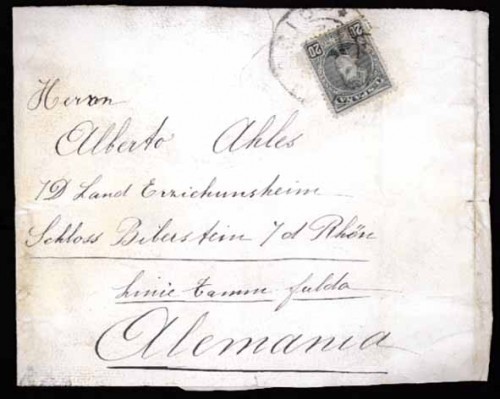 20 20
Herron
Alberto Ahles
7D Land Erzichunsheim
Schloss Biberstein 7/d Rhön
Linie Tamm fulda
Alemania